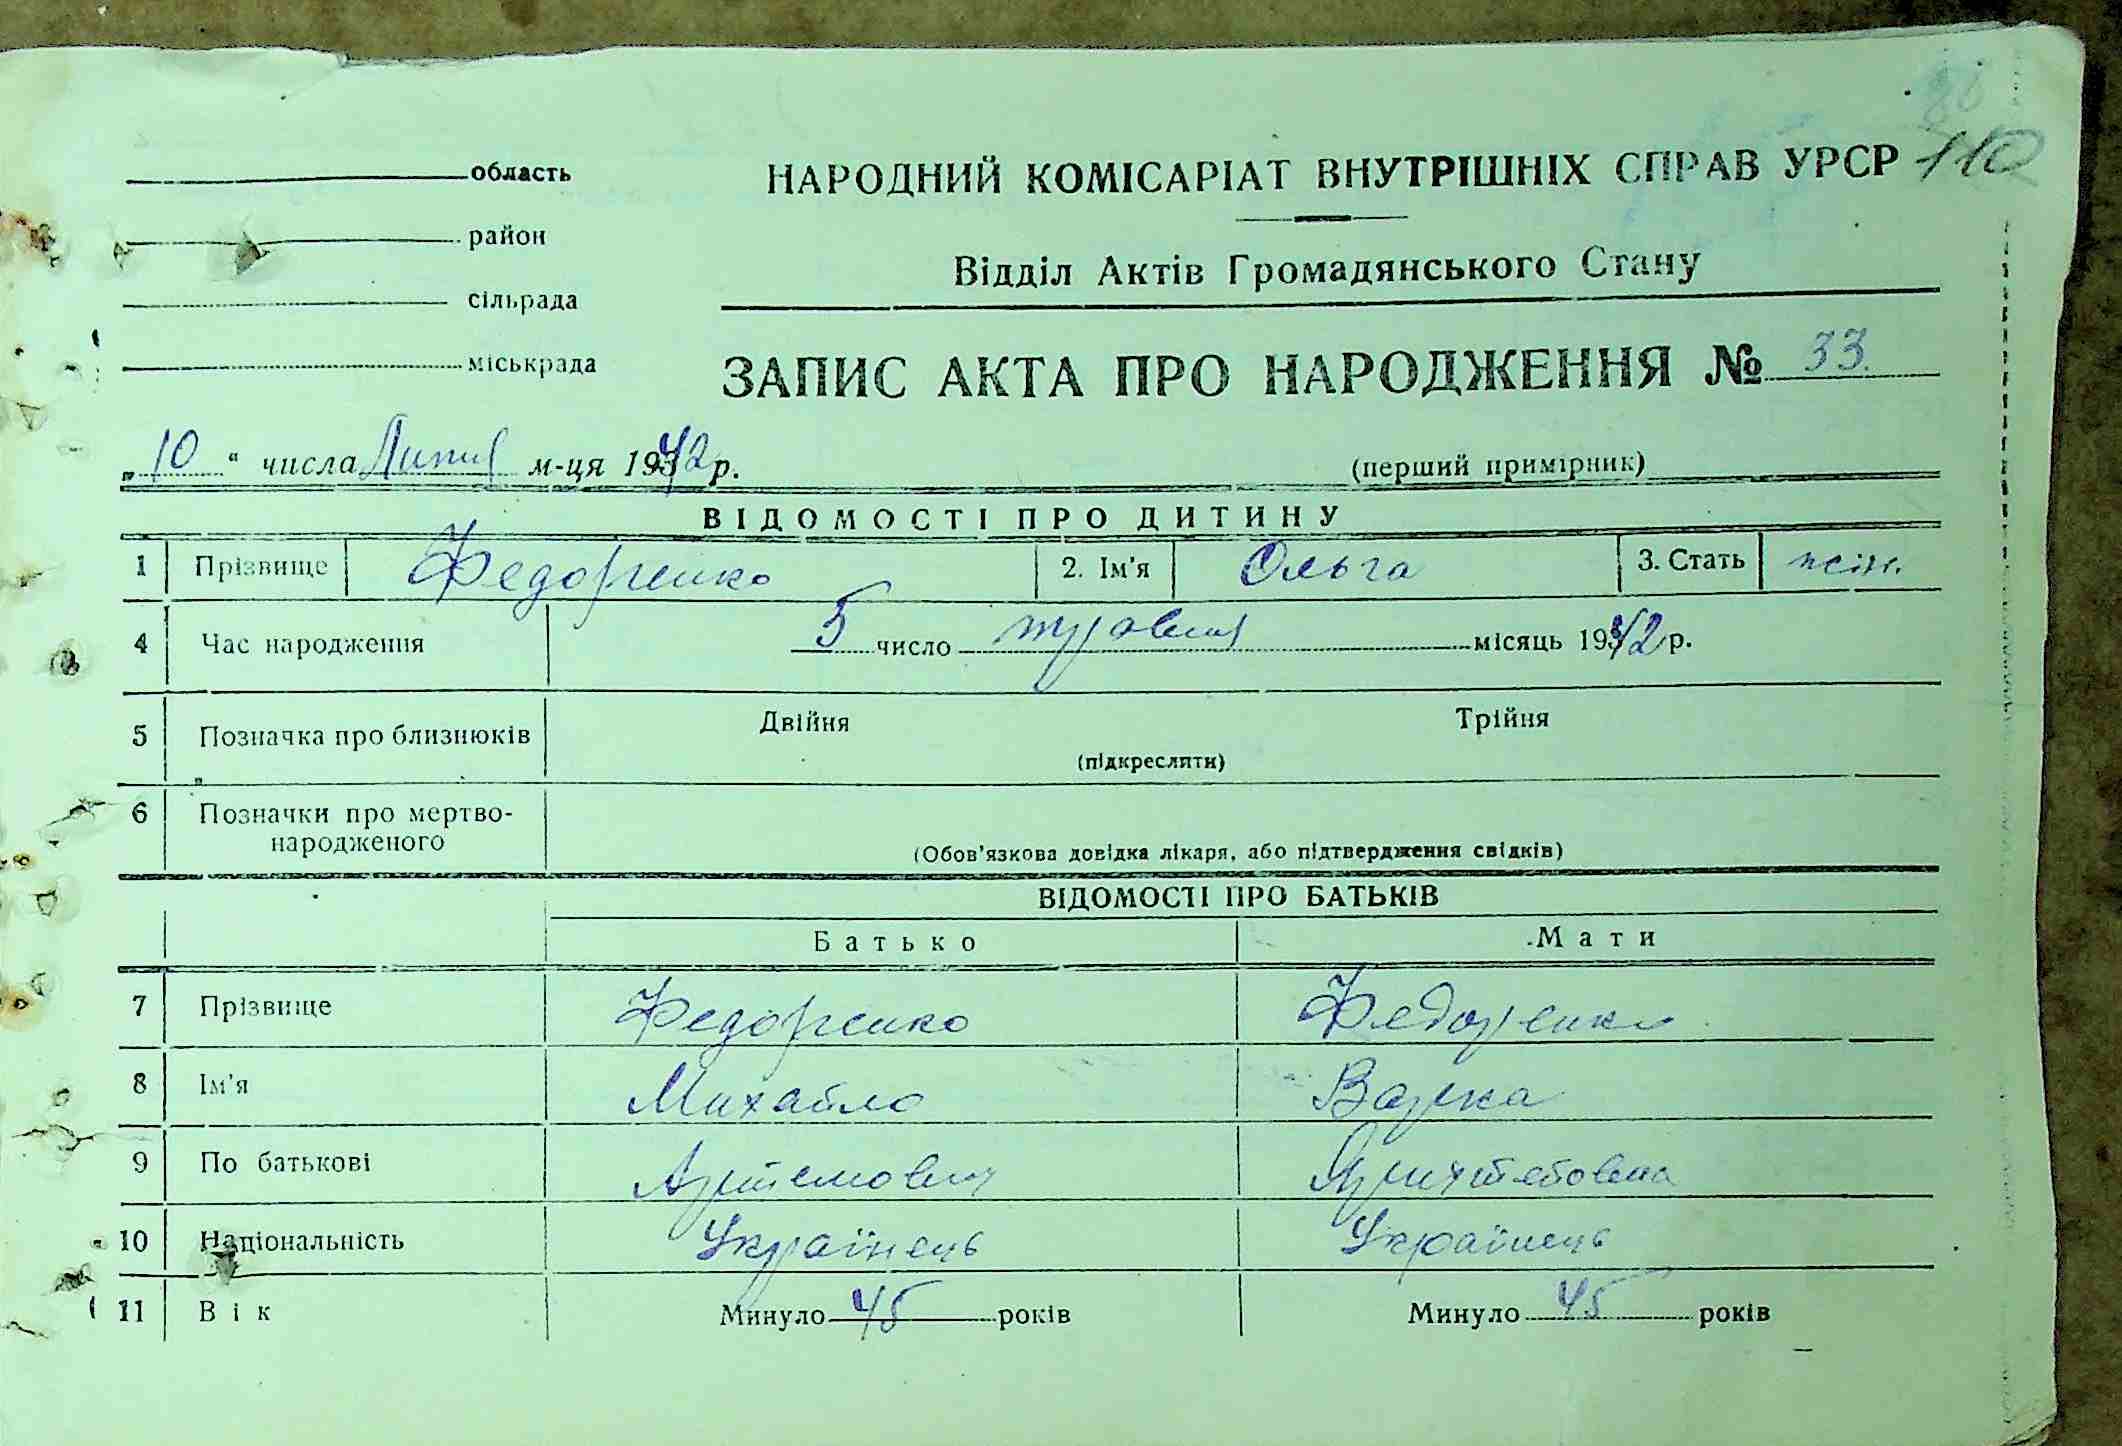 область
НАРОДНИЙ КОМІСАРІАТ ВНУТРІШНІХ СПРАВ УРСР 110
район
Відділ Актів Громадянського Стану
сільрада
міськрада
ЗАПИС АКТА ПРО НАРОДЖЕННЯ № 33.
„10“ числа Липня м-ця 1942 р.
(перший примірник)
ВІДОМОСТІ ПРО ДИТИНУ
1 Прізвище Федоренко 2. Ім'я Ольга 3. Стать жін.
4 Час народження 5 число травня місяць 1942 р.
5 Позначка про близнюків Двійня Трійня
(підкреслити)
6 Позначки про мертво-
народженого
(Обов'язкова довідка лікаря, або підтвердження свідків)
ВІДОМОСТІ ПРО БАТЬКІВ
Батько Мати
7 Прізвище Федоренко Федоренко
8 Ім'я Михайло Варка
9 По батькові Артемович
10 Національність Українець Українець
11 Вік Минуло 45 років Минуло 45 років